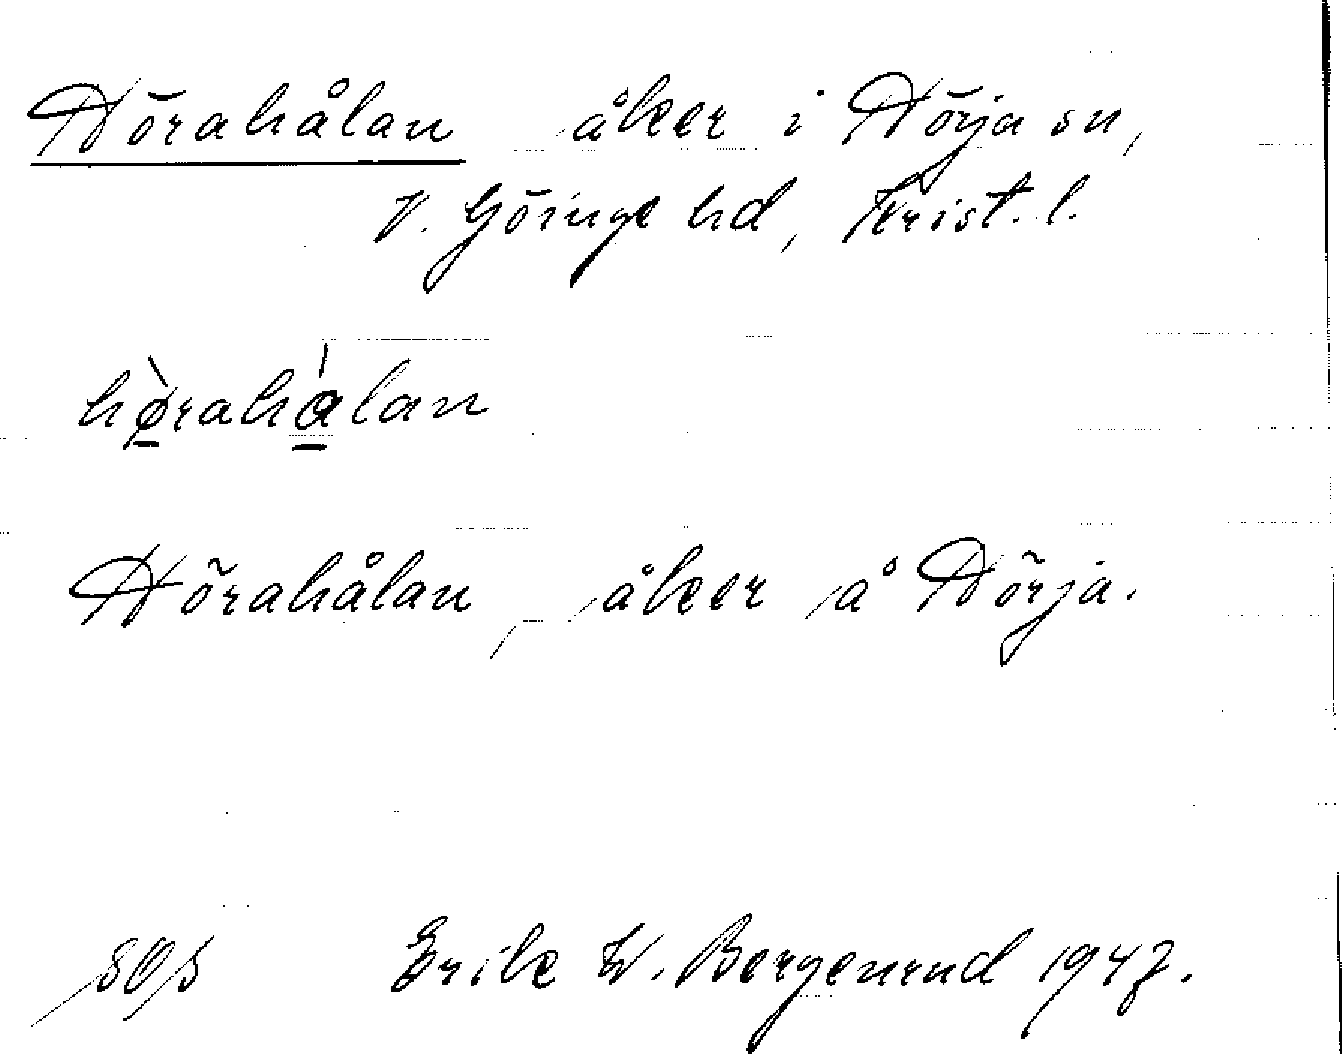 Hörahålan åker i Hörja sn,
V. Göinge hd, Krist. l.
hø̠̀raha̠̍lan
Hörahålan, åker å Hörja.
Erik W. Bergenrud 1947.